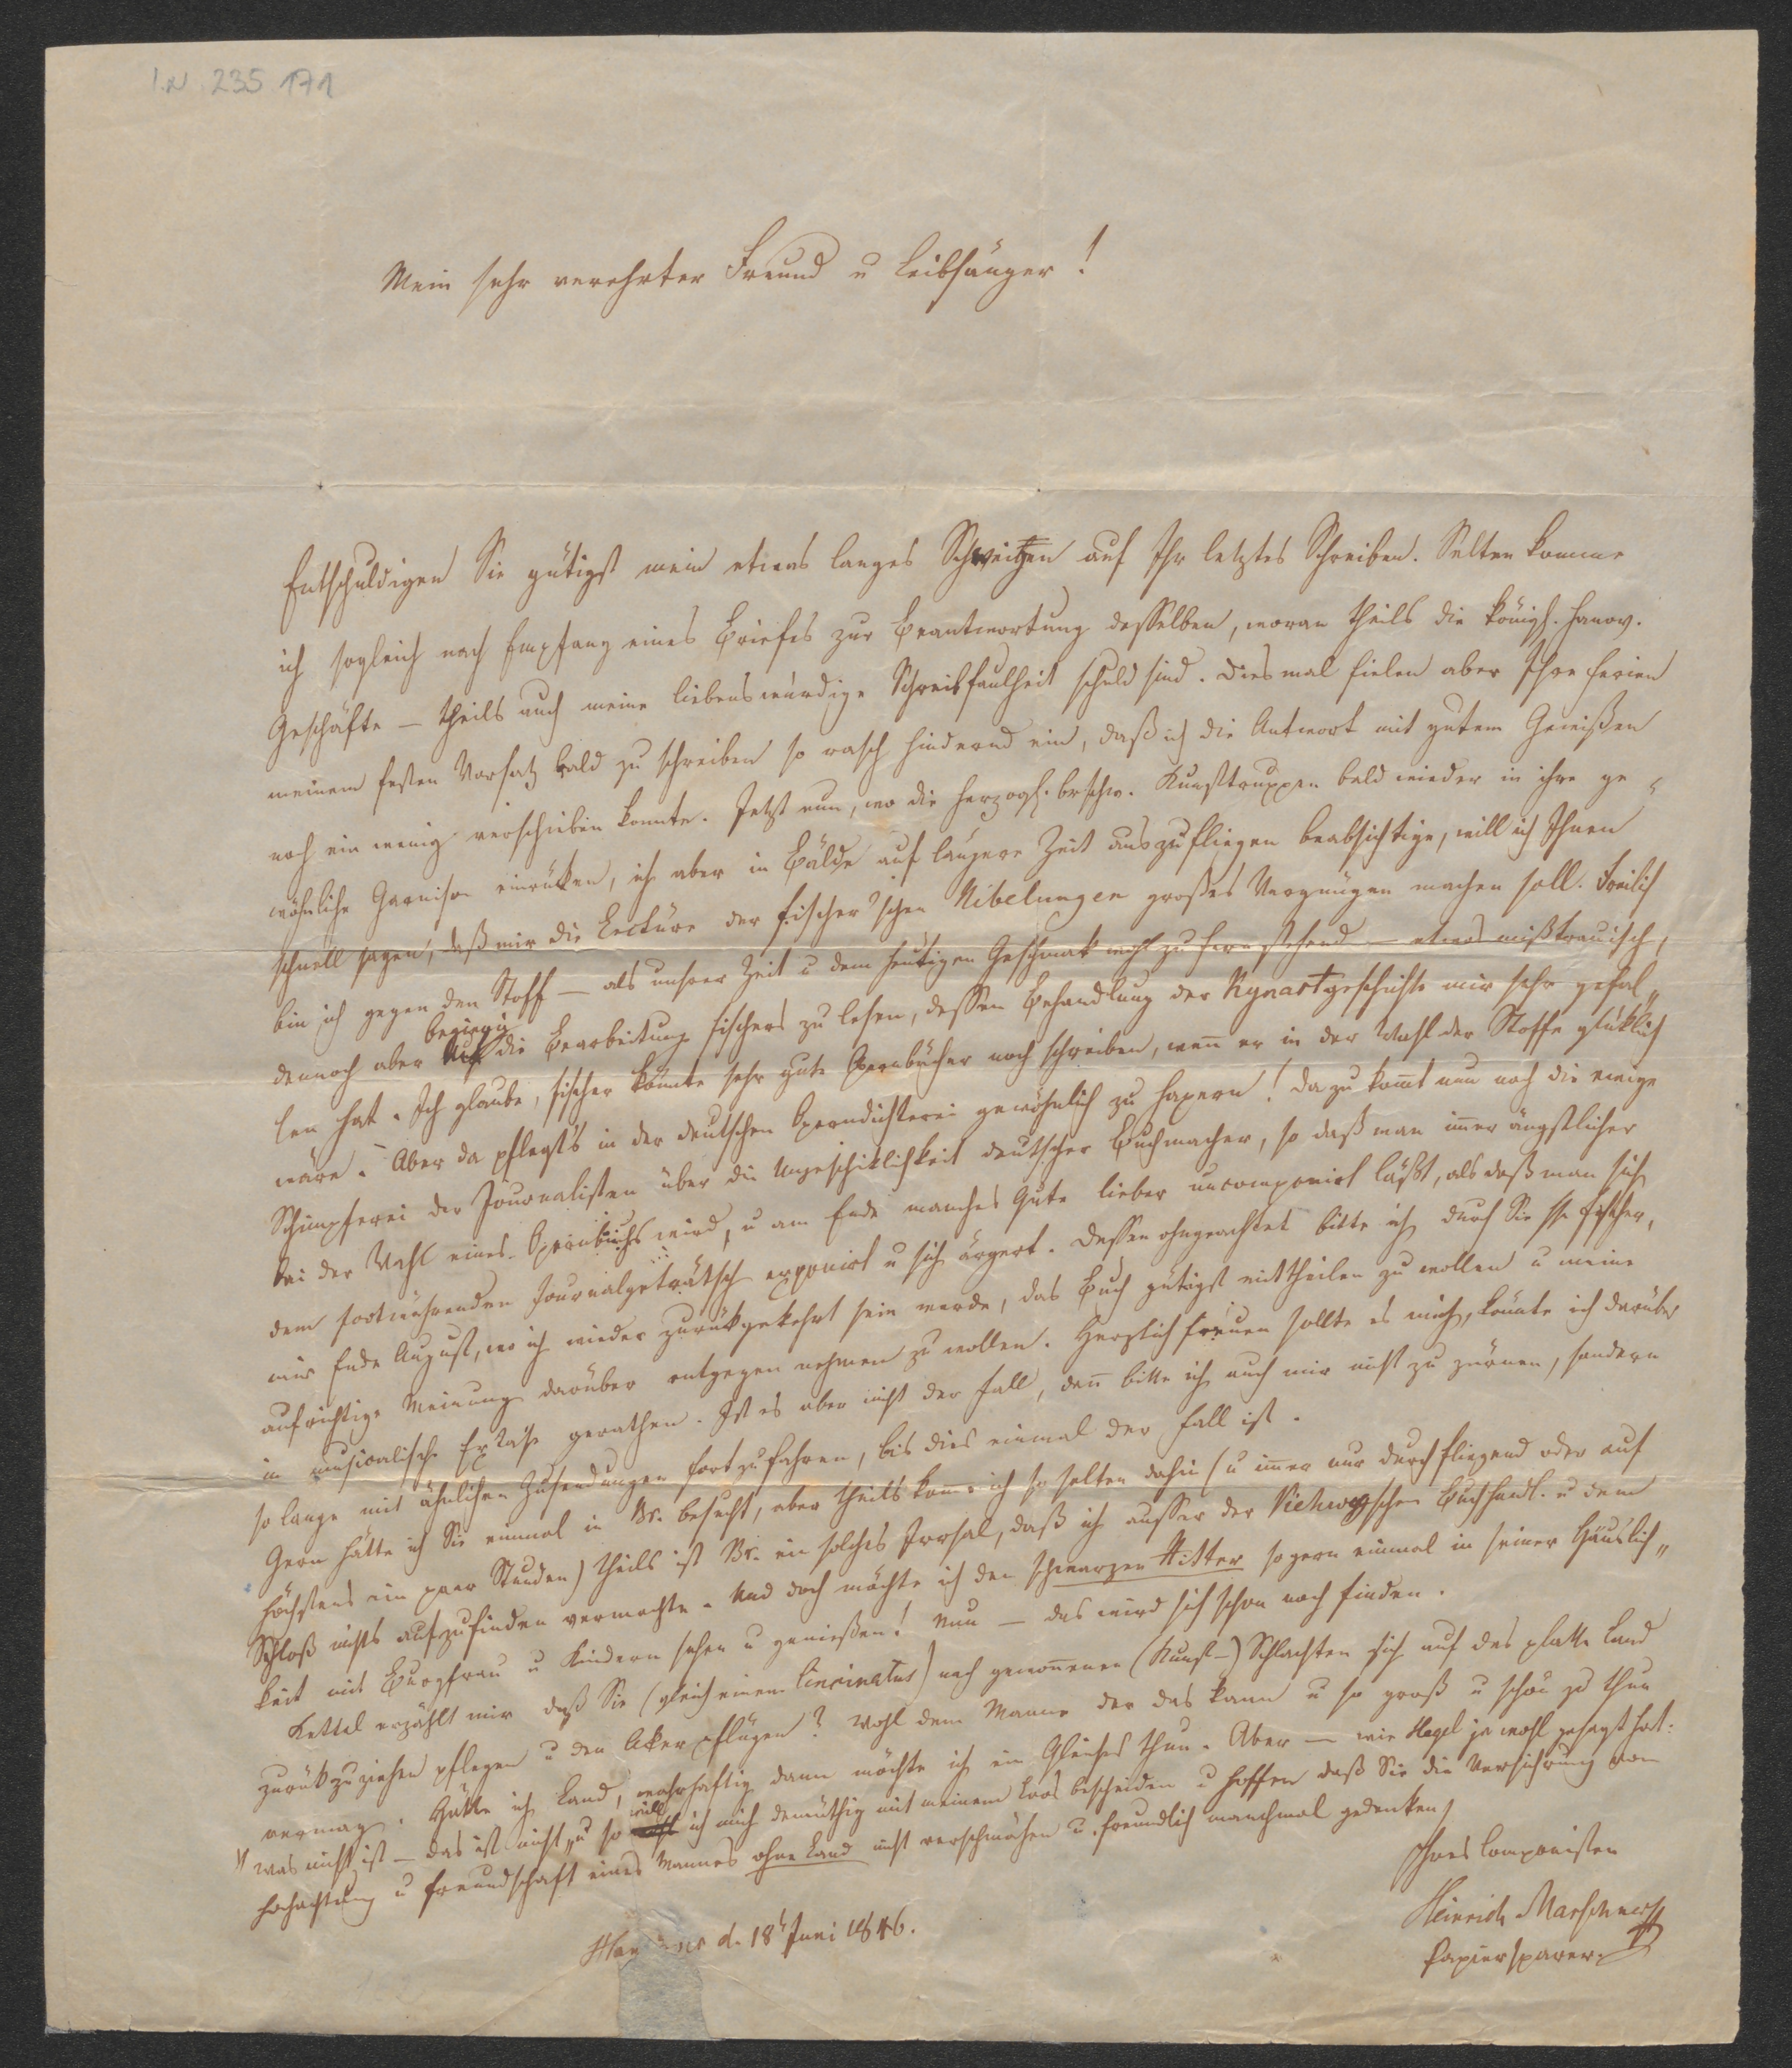 I.N. 235.171
Mein sehr verehrter Freund u Leibsänger!
Entschuldigen Sie gütigst mein etwas langes Schweigen auf Ihr letztes Schreiben. Selten komme
ich sogleich nach Empfang eines Briefes zur Beantwortung desselben, woran theils die königl. hanov.
Geschäfte – theils auch meine liebenswürdige Schreibfaulheit schuld sind. Diesmal fielen aber Ihre Ferien
meinem festen Vorsatz bald zu schreiben so rasch hindernd ein, daß ich die Antwort mit gutem Gewißen
noch ein wenig verschieben konnte. Jetzt nun, wo die herzogl. brschw. Kunsttruppen bald wieder in ihre ge-
wöhnliche Garnison einrücken, ich aber in Bälde auf längere Zeit auszufliegen beabsichtige, will ich Ihnen
schnell sagen, daß mir die Lectüre der Fischer'schen Nibelungen großes Vergnügen machen soll. Freilich
bin ich gegen den Stoff – als unsrer Zeit u dem heutigen Geschmak wohl zu fernstehend – etwas mißtrauisch,
dennoch aber begierig die Bearbeitung Fischers zu lesen, dessen Behandlung der Kynastgeschichte mir sehr gefal„
len hat. Ich glaube, Fischer könnte sehr gute Opernbücher noch schreiben, wenn er in der Wahl der Stoffe glüklich
wäre. – Aber da pflegt's in der deutschen Operndichterei gewöhnlich zu hapern! Dazu kommt nun noch die ewige
Schimpferei der Journalisten über die Ungeschiklichkeit deutscher Buchmacher, so daß man immer ängstlicher
bei der Wahl eines Opernbuchs wird, u am Ende manches Gute lieber uncomponirt läßt, als daß man sich
dem fortwährenden Journalgeträtsch exponirt u sich ärgert. Dessen ohngeachtet bitte ich durch Sie Hr. Fischer,
mir Ende August, wo ich wieder zurükgekehrt sein werde, das Buch gütigst mittheilen zu wollen u meine
aufrichtige Meinung darüber entgegen nehmen zu wollen. Herzlich freuen sollte es mich, könnte ich darüber
in musicalische Extase gerathen. Ist es aber nicht der Fall, dann bitte ich auch mir nicht zu zürnen, sondern
so lange mit ähnlichen Zusendungen fortzufahren, bis dies einmal der Fall ist.
Gern hätte ich Sie einmal in Br. besucht, aber theils komme ich so selten dahin (u immer nur durchfliegend oder auf
höchstens ein paar Stunden) theils ist Br. ein solches Irrsal, daß ich ausser der Viehwegschen Buchhandl. u dem
Schloß nichts aufzufinden vermochte. Und doch möchte ich den schwarzen Ritter so gern einmal in seiner Häuslich„
keit mit Burgfrau u Kindern sehen u genießen! Nun – das wird sich schon noch finden.
Kettel erzählt mir daß Sie (gleich einem Cincinatus) nach gewonnenen (Kunst-) Schlachten sich auf das platte Land
zurükzuziehen pflegen u den Aker pflügen? Wohl dem Manne der das kann u so groß u schön zu thun
vermag. Hätte ich Land, wahrhaftig dann möchte ich ein Gleiches thun. Aber – wie Hegel ja wohl gesagt hat:
„was nicht ist – das ist nicht", u so will ich mich demüthig mit meinem Loos bescheiden u hoffen daß Sie die Versicherung von
Hochachtung u Freundschaft eines Mannes ohne Land nicht verschmähen u. freundlich manchmal gedenken
Ihres Componisten
Heinrich Marschner
Papiersparer.
Hannover d. 18t Juni 1846.